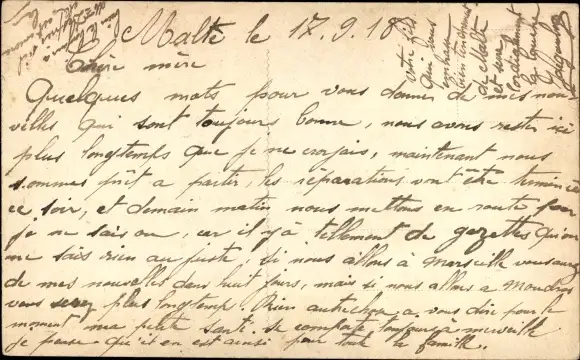 Malte le 17.9.18
Chère mère
Quelques mots pour vous donner de mes nou
velles qui sont toujours bonne, nous avons rester ici
plus longtemps que je ne croyais, maintenant nous
sommes prêt a partir, les réparations vont être terminée
ce soir, et demain matin nous mettons en route pour
je ne sais ou, car il y a tellement de gazettes qu'on
ne sais rien au juste, si nous allons à Marseille vous aurez
de mes nouvelles dans huit jours, mais si nous allons a Moudros
vous serez plus longtemp. Rien autre chose a vous dire pour le
moment ma petite santé se comporte toujours a merveille
je pense qu'il en est ainsi pour toute la famille.
votre fils
qui vous
embrasse
bien tendrement
de Malte
et son
cordialement